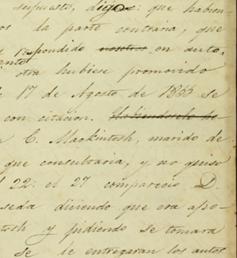 supuesto, dijese: que habien
os la parte contraria, que
respondido nosotros en auto,
otra hubiese promovido
17 de Agosto de 1885 se
con citacion.
C. Mackintosh, marido de
que consultaria, y no quiso
22: el 27 comparecio D.
seda diciendo que era apo-
tosh y pidiendo se tomara
se le entregaran los autos